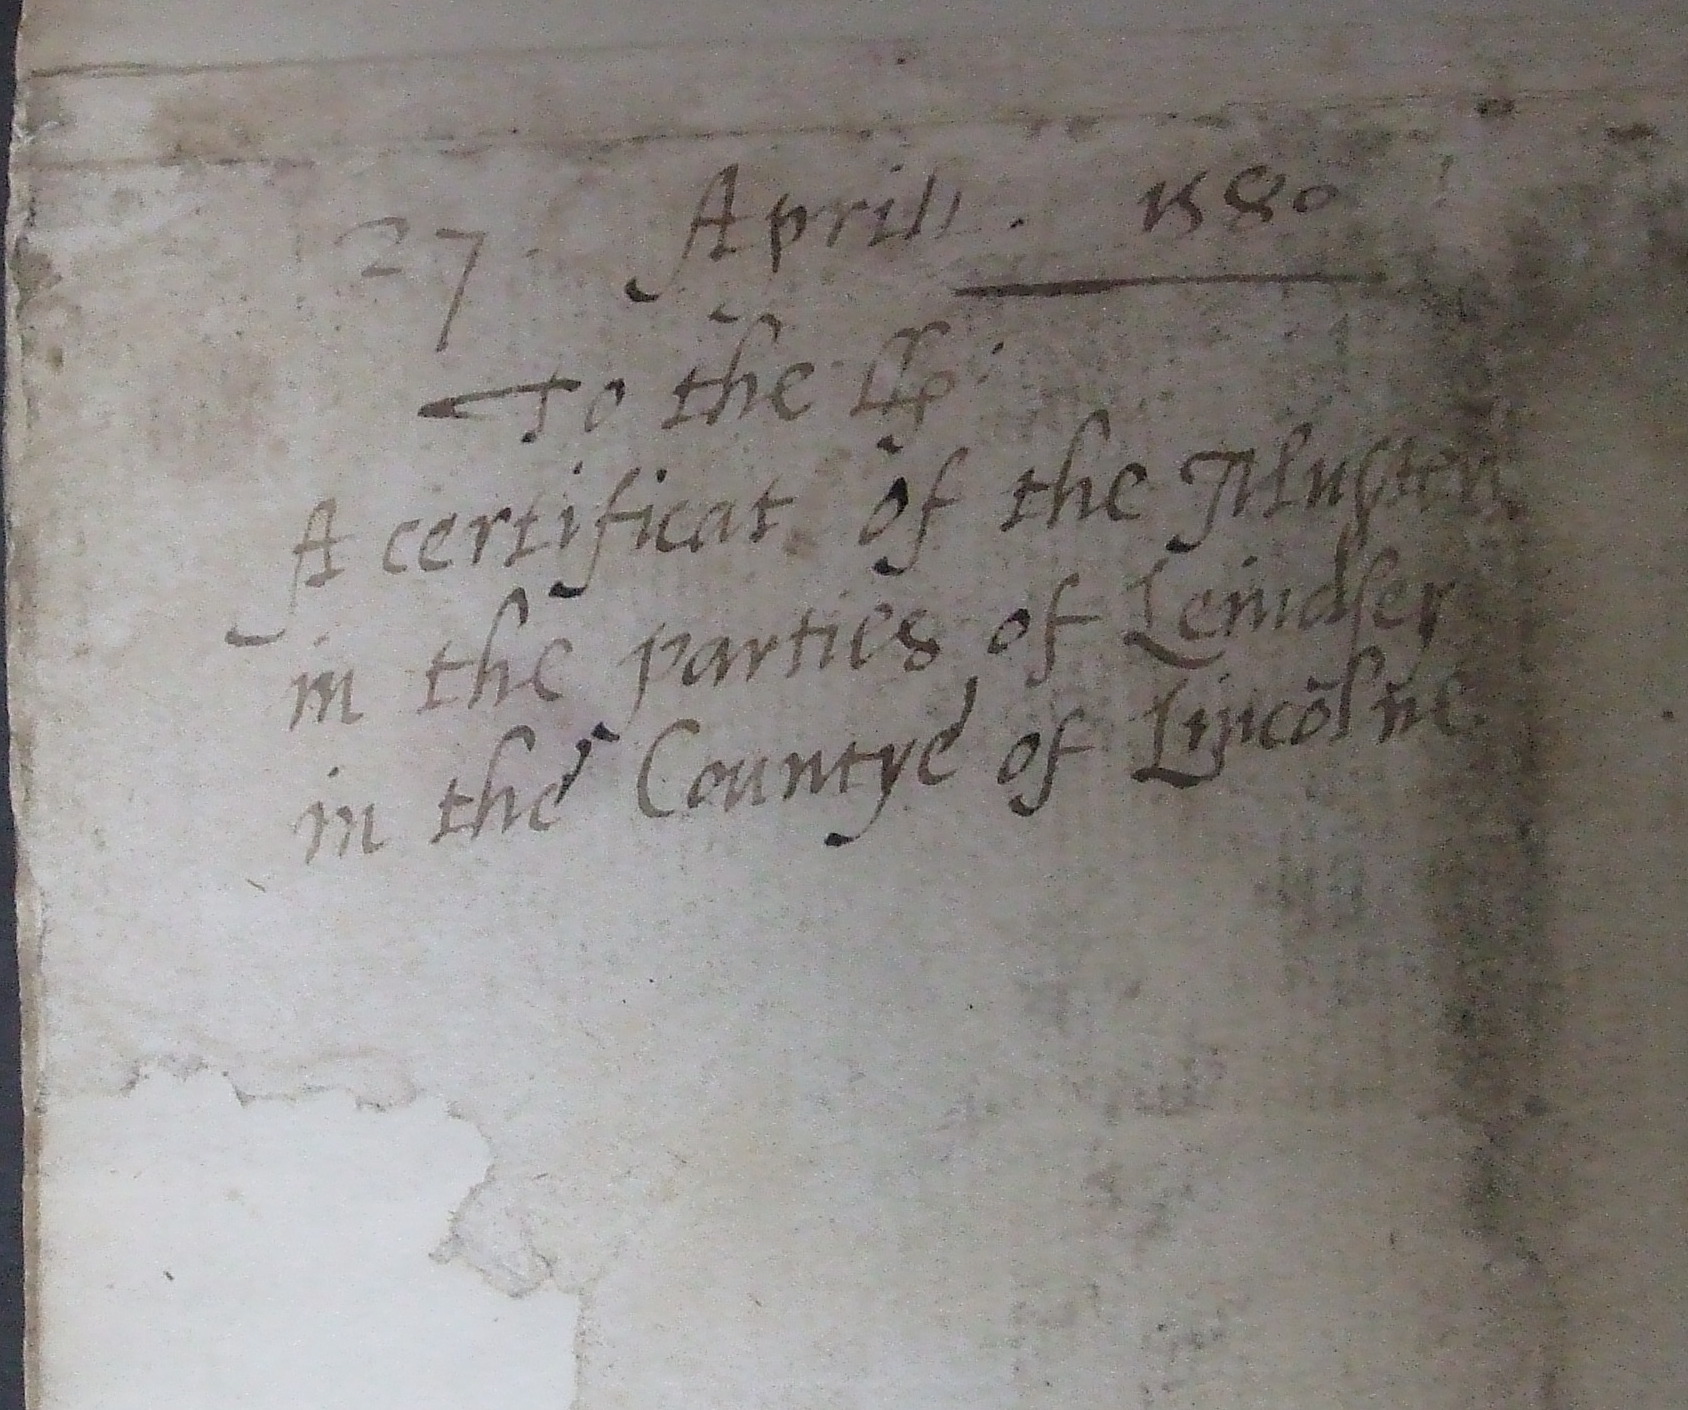 27. Aprill. 1580
To the LLp:
A certificat of the Musters
in the parties of Leindsey
in the Countye of Lincolne